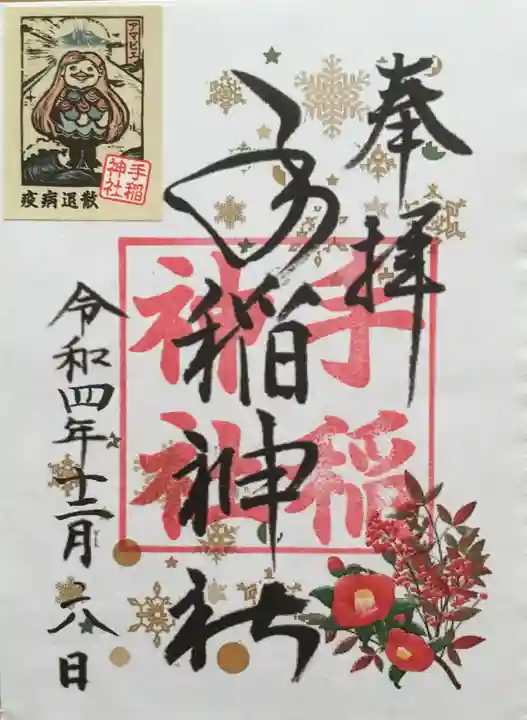 奉拝
手稲神社
手稲神社
令和四年十二月二八日
アマビエ
手稲神社
疫病退散